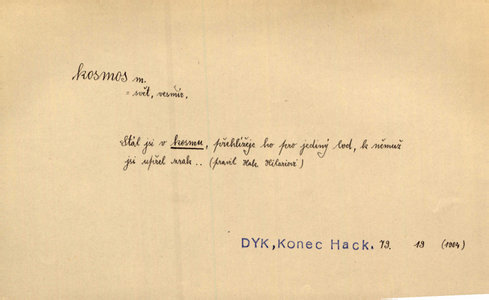 kosmos m.
= svět, vesmír.
Stál jsi v kosmu, přehlížeje ho pro jediný bod, k němuž
jsi upřel zrak .. (pravil Hack Hilariovi)
DYK, Konec Hack. 79. 19 (1904)